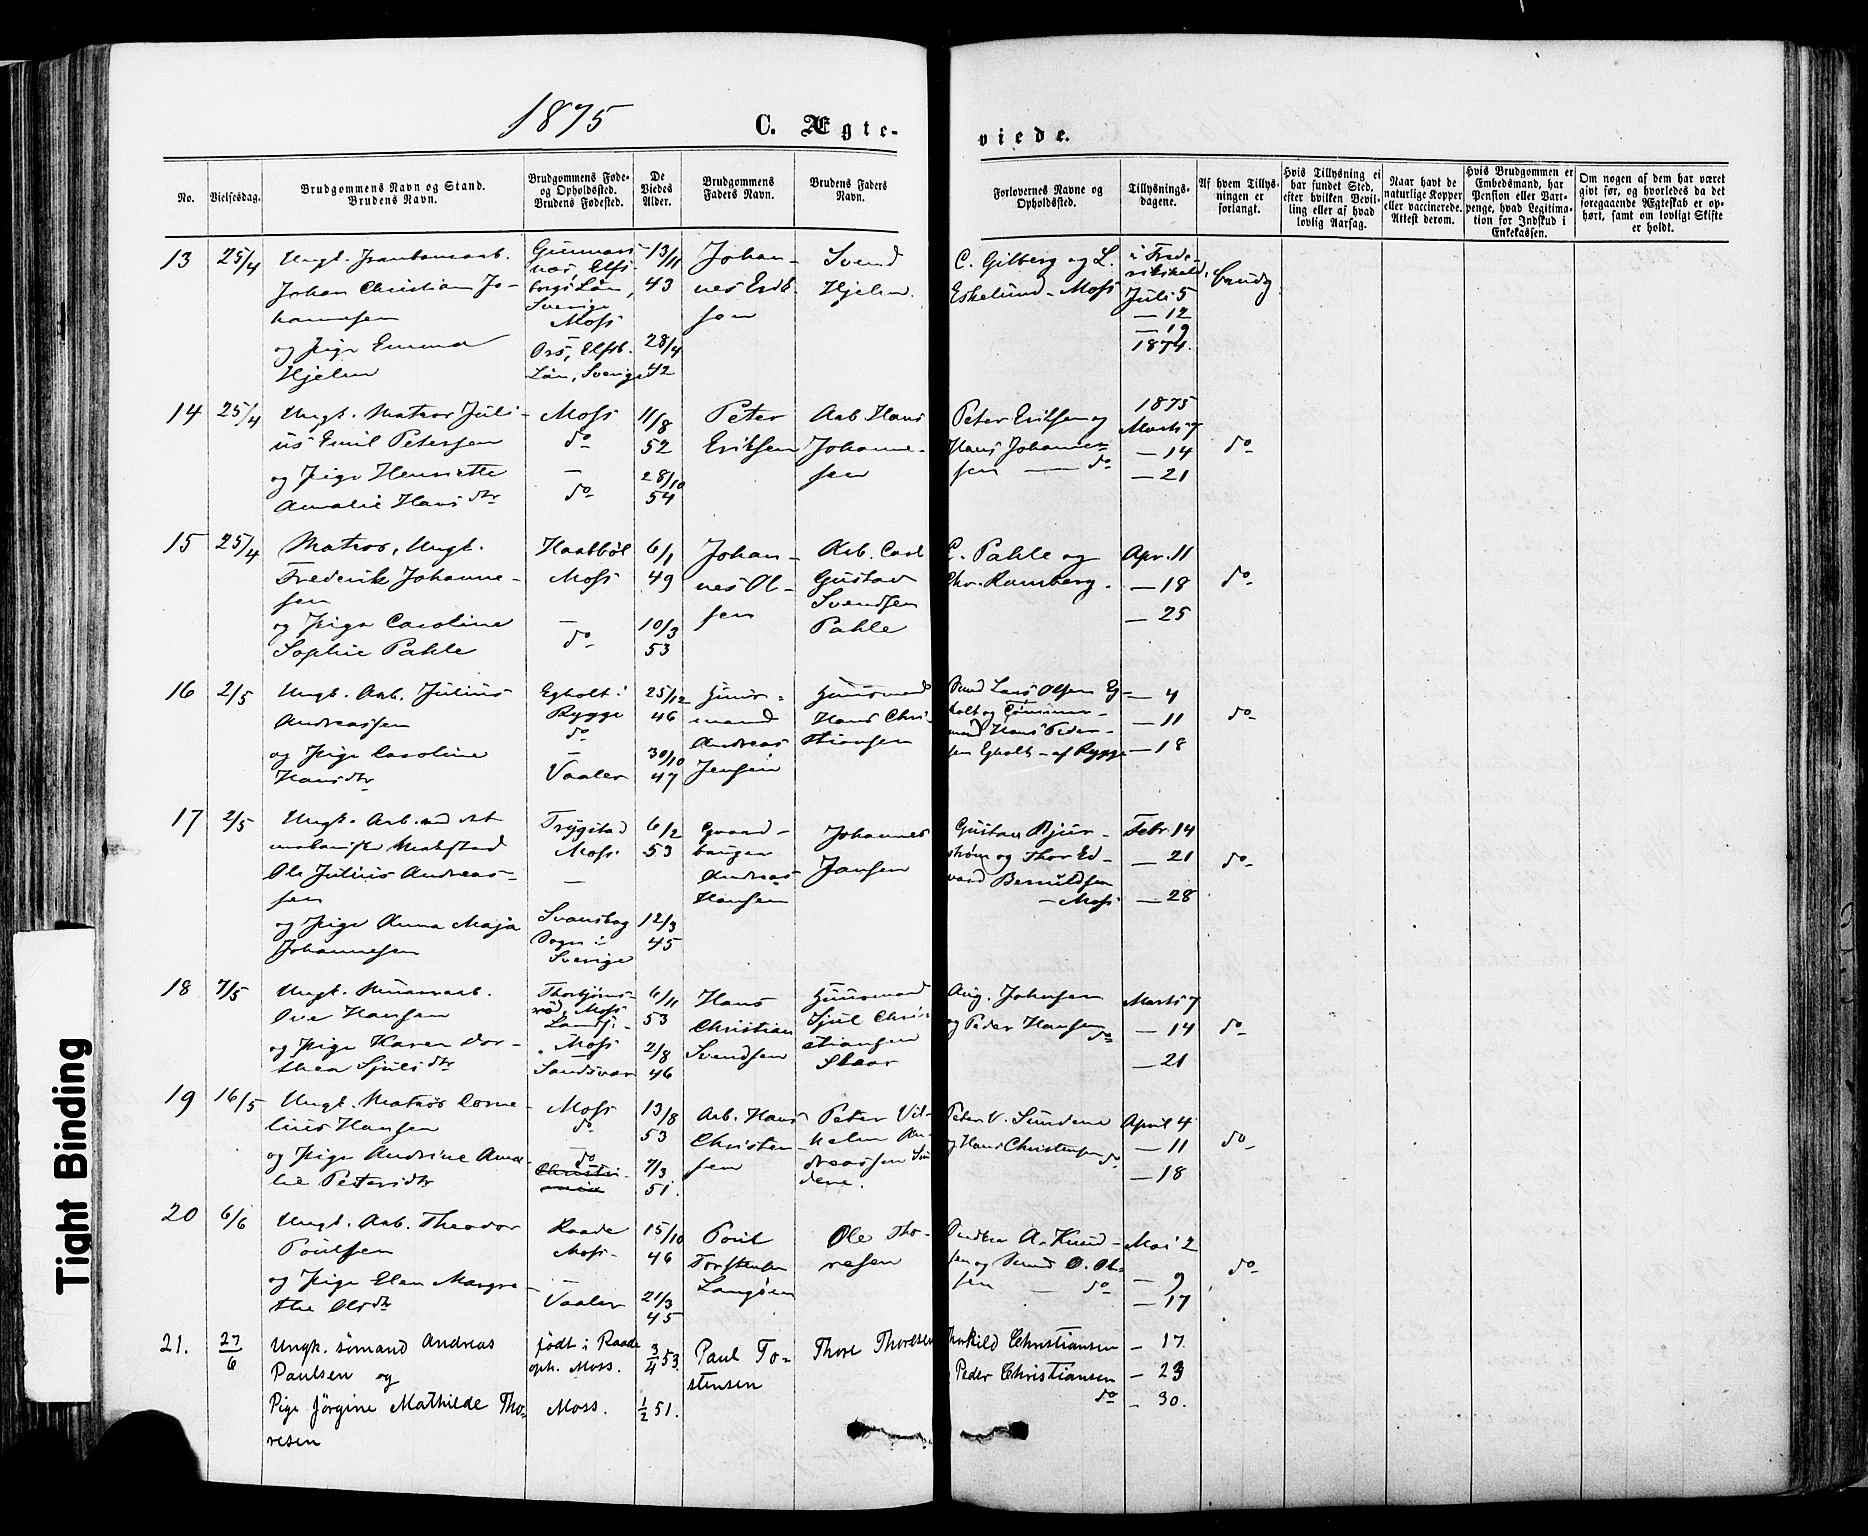 1875
C. Ægte-
viede.
No.
Vielsesdag.
Brudgommens Navn og Stand.
Brudens Navn.
Brudgommens Føde-
og Opholdssted.
Brudens Fødested.
De
Viedes
Alder.
Brudgommens
Faders Navn.
Brudens Faders
Navn.
Forlovernes Navne og
Opholdssted.
Tillysnings-
dagene.
Af hvem Tillys-
ningen er
forlangt.
Hvis Tillysning ei
har fundet Sted,
efter hvilken Bevil-
ling eller af hvad
lovlig Aarsag.
Naar havt de
naturlige Kopper
eller vaccinerede.
Attest derom.
Hvis Brudgommen er
Embedsmand, har
Pension eller Var-
penge, hvad Legitima-
tion for Indskud i
Enkekassen.
Om nogen af dem har været
givt før, og hvorledes da det
foregaaende Ægteskab er op-
hørt, samt om lovligt Skifte
er holdt.
13
25/4
Ungk. Jernbanearb.
Johan Christian Jo-
hannesen
og Pige Emma
Hjelm
Gunnars-
næs, Elfs-
borgs Län,
Sverige
Moss
Ors, Elfsb.
Län, Sverige
13/11
43
28/4
42
Johan-
nes Erik-
son
Svend
Hjelm.
C. Gilberg og L.
Eskelund - Moss
i Frede-
rikshald,
Juli 5
— 12
— 19
1874.
Brudg.
14
25/4
Ungk. Matros Juli-
us Emil Petersen
og Pige Henriette
Amalie Hansdtr
Moss
do
—
do
11/8
52
28/10
54
Peter
Eriksen
Arb. Hans
Johanne-
sen
Peter Eriksen og
Hans Johanne-
sen — do
1875
Marts 7
— 14
— 21
do
15
25/4
Matros, Ungk.
Frederik Johanne-
sen
og Pige Caroline
Sophie Pahle
Haabbøl
Moss
—
do
6/1
49
10/3
53
Johan-
nes Ol-
sen
Arb. Carl
Gustav
Svendsen
Pahle
C. Pahle og
Chr. Ramberg.
Apr. 11
— 18
— 25
do
16
2/5
Ungk. Arb. Julius
Andreassen
og Pige Caroline
Hansdtr
Egholt i
Rygge
do
—
Vaaler
25/12
46
30/10
47
Huus-
mand
Andreas
Jensen
Huusmand
Hans Chri-
stiansen
Lars Olsen Eg-
holt og Tømmer-
mand Hans Peder-
sen Egholt - af Rygge
— 4
— 11
— 18
do
17
2/5
Ungk. Arb. ved det
mekaniske Værksted
Ole Julius Andreas-
sen
og Pige Anna Maja
Johannesen
Trygstad
Moss
—
Svanskog
Sogn i
Sverige
6/2
53
12/3
45
Gaard-
bruger
Andreas
Hansen
Johannes
Jansen
Gustav Bjur-
strøm og Thor Ed-
vard Berntsen
— Moss
Febr 14
— 21
— 28
do
18
7/5
Ungk.
Ove Hansen
og Pige Karen Dor-
thea Sjulsdtr
Thorbjørns-
rød, Moss
Lands.-
Moss
Sandsvær
6/11
53
2/8
46
Hans
Christian
Svendsen
Huusmand
Sjul Chris-
tiansen
Skaar
Aug. Johnsen
og Peder Hansen
do
Marts 7
— 14
— 21
do
19
16/5
Ungk. Matros Corne-
lius Hansen
og Pige Andrine Ama-
lie Petersdtr
Moss
do
do
Christi-
ania
13/8
53
7/3
51.
Arb. Hans
Christen-
sen
Peter Vil-
helm An-
dreassen Sun-
dene.
Peter V. Sundene
og Hans Christensen do
April 4
— 11
— 18
do
20
6/6
Ungk. Arb. Theodor
Poulsen
og Pige Elen Margre-
the Olsdtr
Raade
Moss-
—
Vaaler
15/10
46
21/3
45
Poul
Torstensen
Langøen
Ole Tho-
resen
A. Knud-
sen og O. Ol-
sen — do
Mai 2
— 9
— 17
do
21.
27/6
Ungk. sömand Andreas
Paulsen og
Pige Jörgine Mathilde Tho-
resen
født i Raade
oph. Moss.
Moss.
3/4 53.
1/2 51.
Paul To-
stensen
Thore Thoresen
Thorkild Christiansen
Peder Christiansen
do
— 17.
— 23
— 30.
Tight Binding